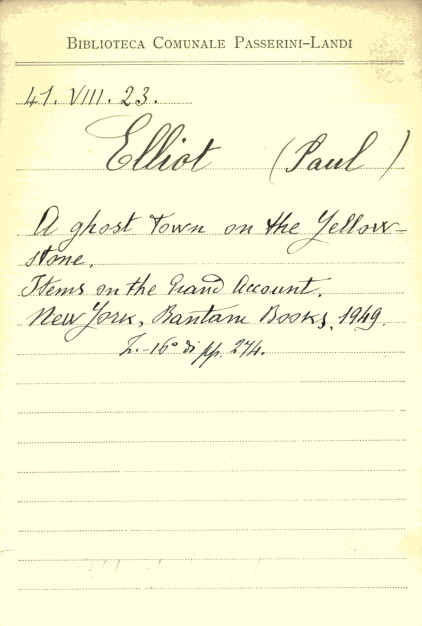 BIBLIOTECA COMUNALE PASSERINI-LANDI
41. VIII. 23.
Elliot (Paul)
A ghost town on the Yellow-
stone.
Items on the Grand Account.
New York, Bantam Books, 1949.
In-16° di pp. 274.